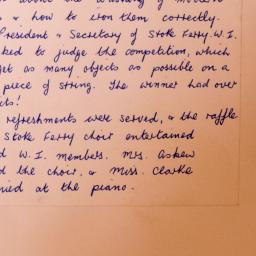 & how to iron them correctly.
President & Secretary of Stoke Ferry W.I.
ked to judge the competition, which
get as many objects as possible on a
piece of string. The winner had over
cts!
refreshments were served, & the raffle
Stoke Ferry choir entertained
d W.I. members. Mrs. Askew
d the choir, & Miss. Clarke
nied at the piano.